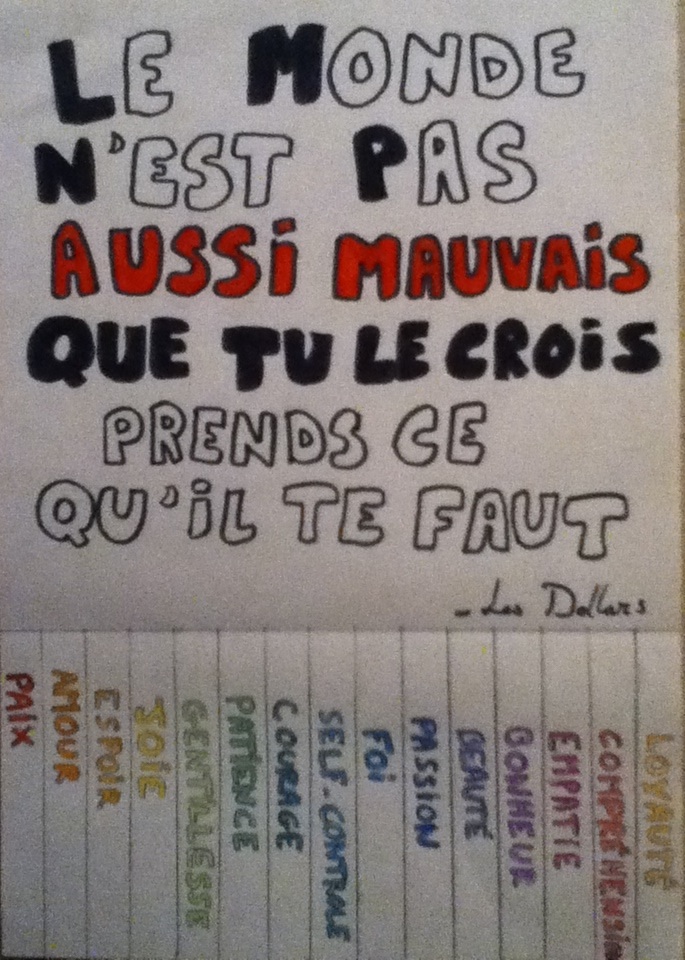 LE MONDE
N'EST PAS
AUSSi MAUVAiS
QUE TU LE CROiS
PRENDS CE
QU'iL TE FAUT
- Les Dollars
PAiX
AMOUR
ESPOiR
JOiE
GENTiLLESSE
PATiENCE
COURAGE
SELF-CONTROLE
FOi
PASSiON
BEAUTÉ
BONHEUR
EMPATiE
COMPRÉHENSiO
LOYAUTÉ